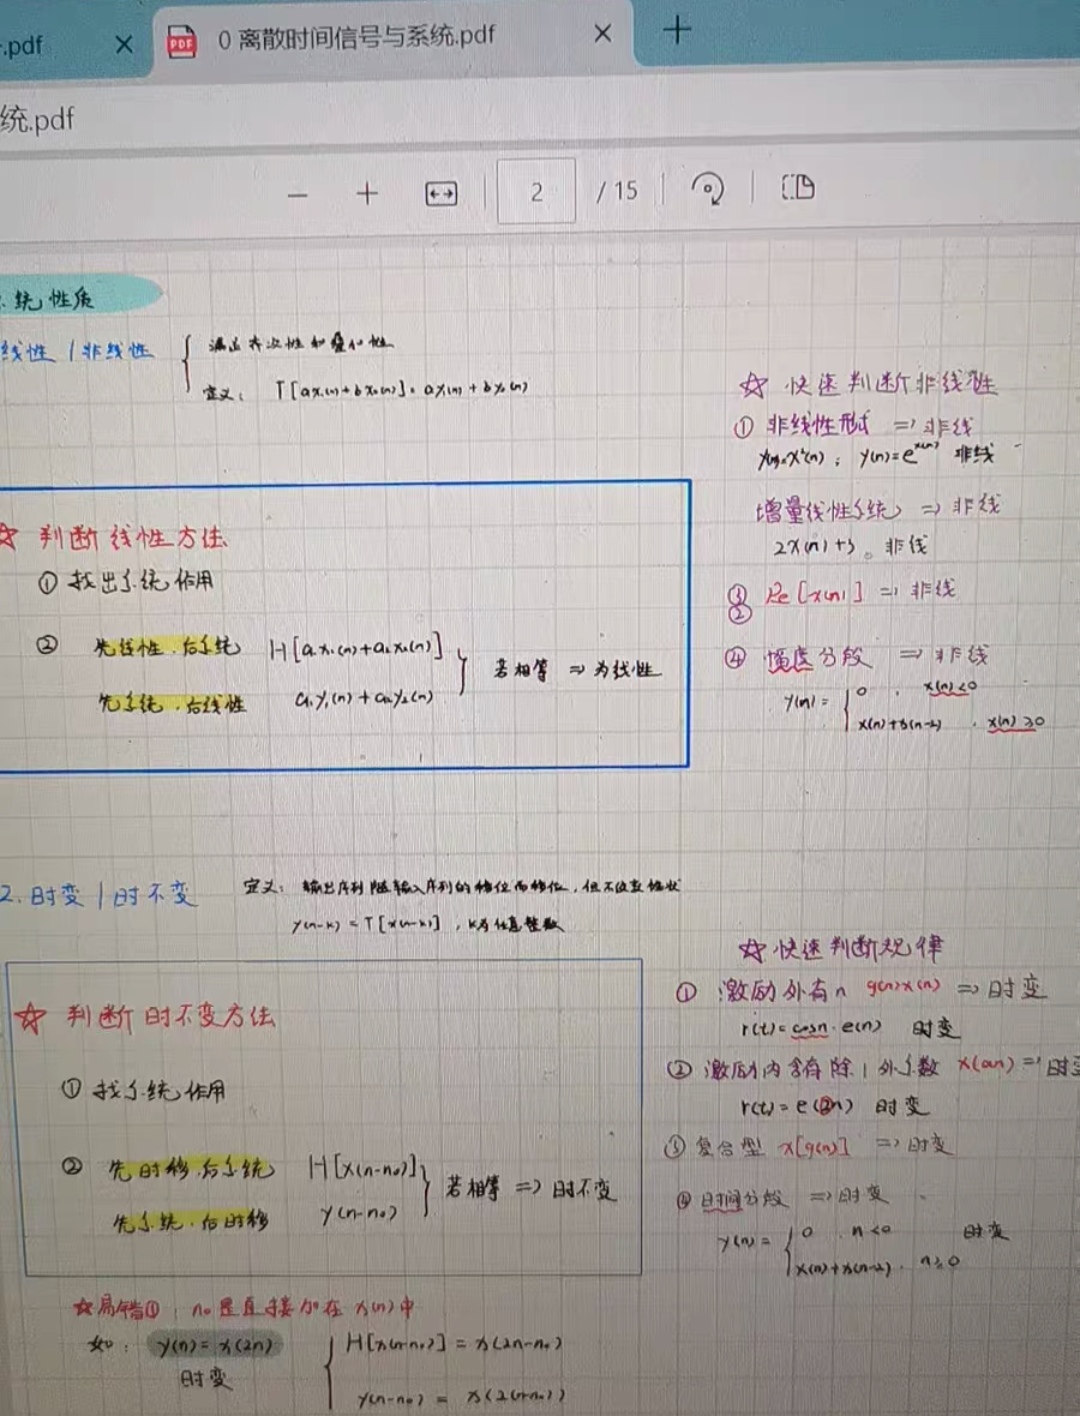 .pdf
0 离散时间信号与系统.pdf
统.pdf
2 / 15
统性质
线性 | 非线性
满足齐次性和叠加性
定义: T[ax₁(n)+bx₂(n)]=ay₁(n)+by₂(n)
☆ 判断线性方法
① 找出系统作用
② 先线性.后系统 H[a₁x₁(n)+a₂x₂(n)]
先系统.后线性 a₁y₁(n)+a₂y₂(n)
若相等 => 为线性
☆ 快速判断非线性
① 非线性形式 => 非线
y(n)=x²(n); y(n)=e^x(n) 非线
增量线性系统 => 非线
2x(n)+3。非线
③ Re[x(n)] => 非线
②
④ 幅度分段 => 非线
y(n)= { 0 , x(n)<0
x(n)+x(n-2) , x(n)≥0
2.时变 | 时不变
定义: 输出序列随输入序列的移位而移位,但不改变性状
y(n-k)=T[x(n-k)],k为任意整数
☆ 判断时不变方法
① 找系统作用
② 先时移.后系统 H[x(n-n₀)]
先系统.后时移 y(n-n₀)
若相等 => 时不变
☆ 快速判断规律
① 激励外有n g(n)x(n) => 时变
r(t)=cosn·e(n) 时变
② 激励内含有除1外系数 x(an) => 时变
r(t)=e(2n) 时变
③ 复合型 x[g(n)] => 时变
④ 时间分段 => 时变
y(n)= { 0 , n<0
x(n)+x(n-2) , n≥0
时变
☆易错①: n₀是直接加在x(n)中
如: y(n)=x(2n)
时变
H[x(n-n₀)]=x(2n-n₀)
y(n-n₀)=x(2(n-n₀))